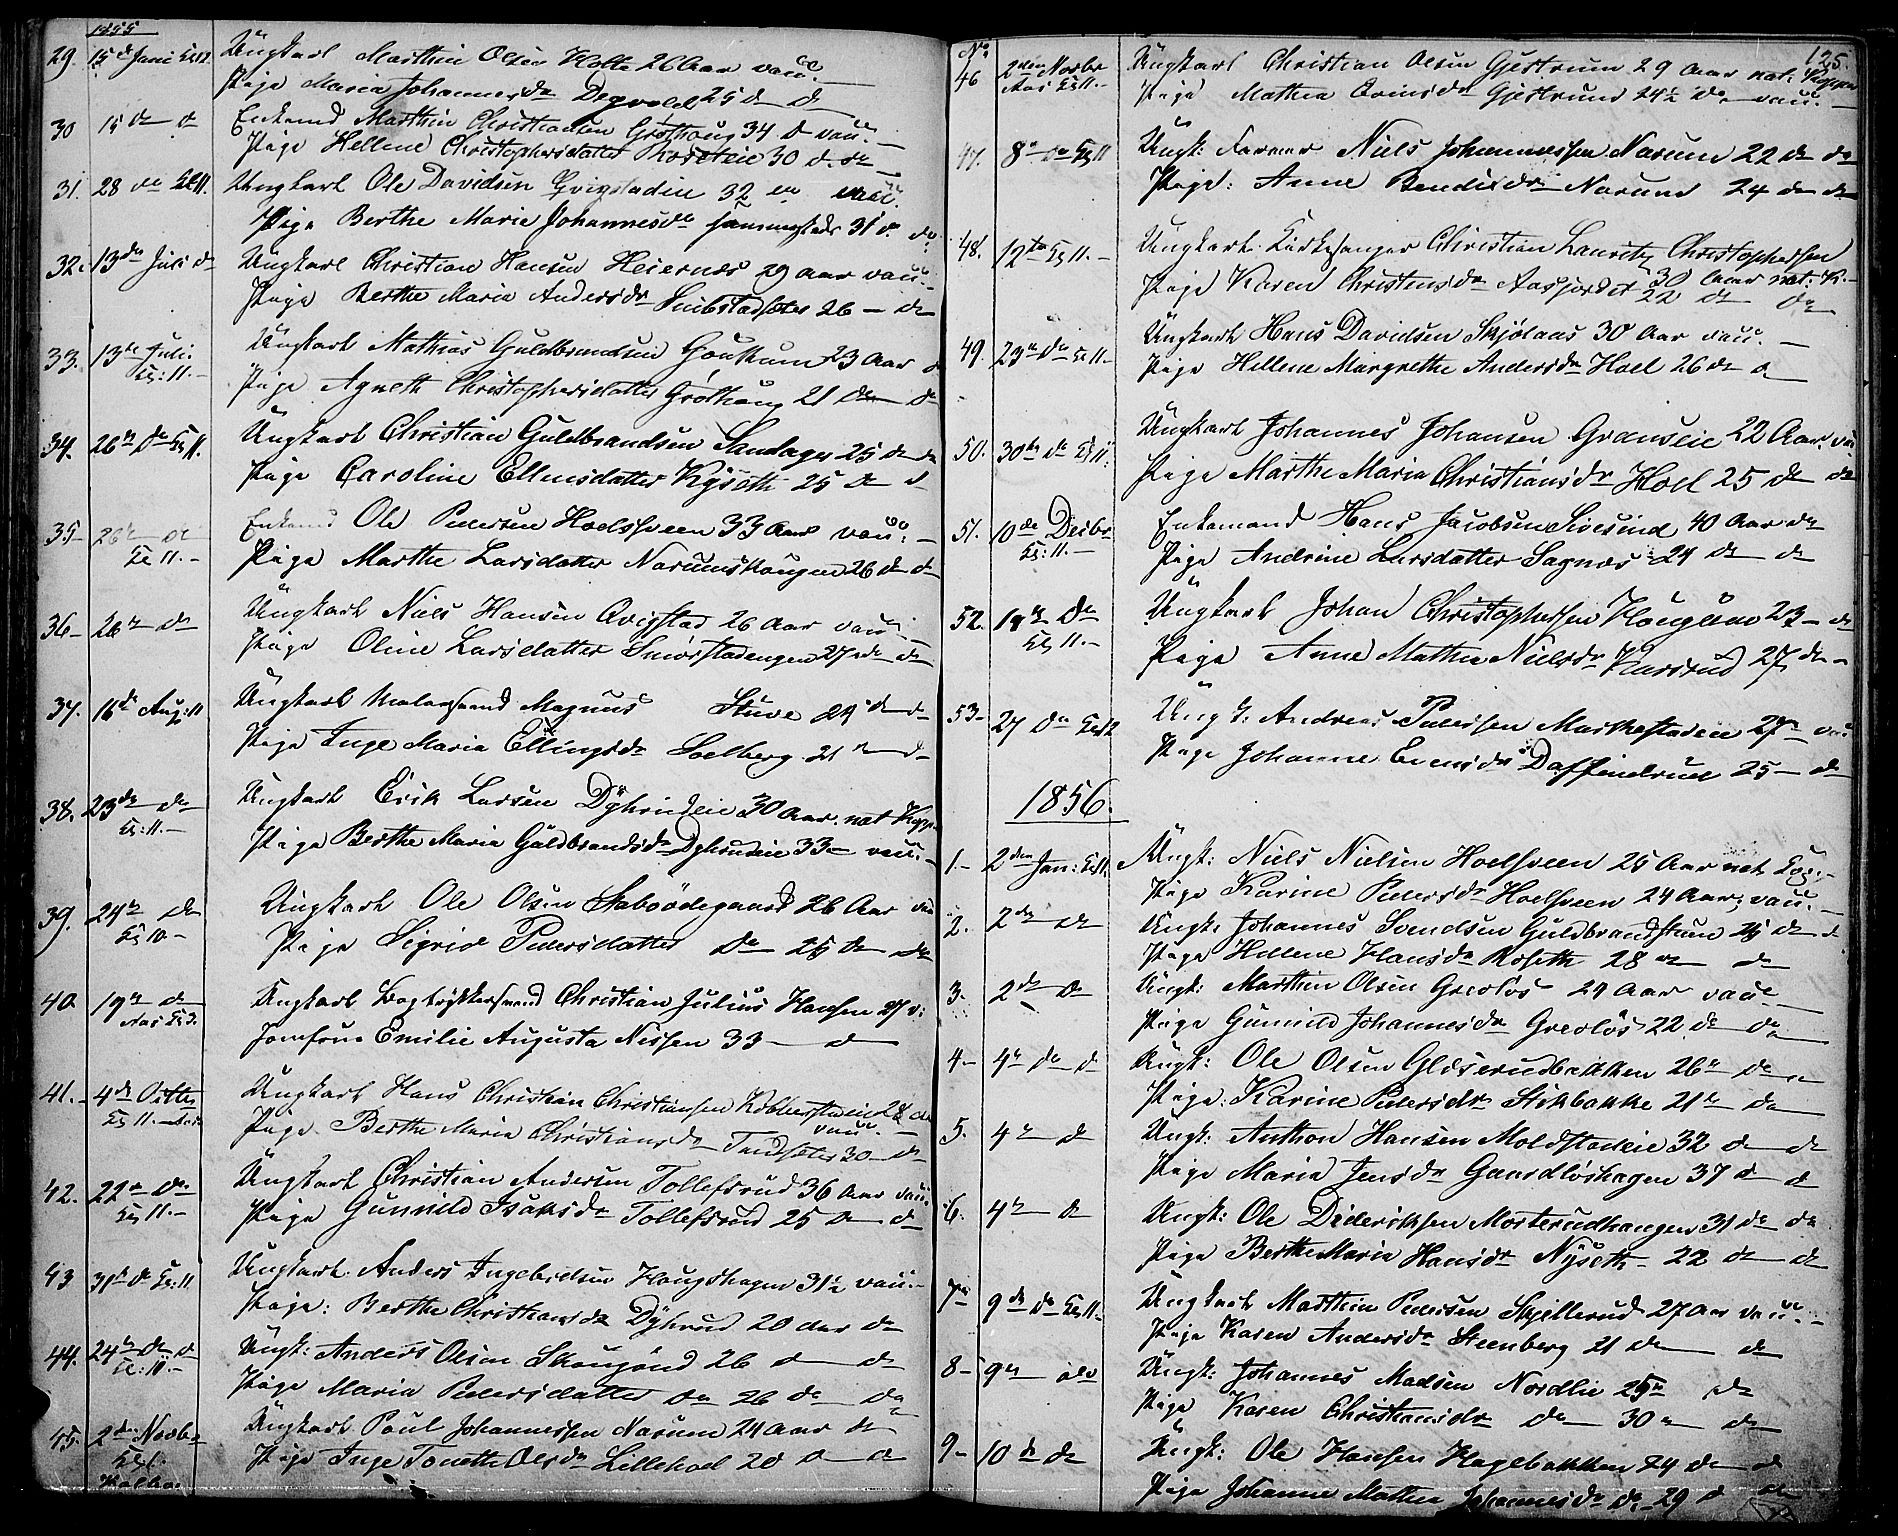 1855
29. 15de Juni Kl 12
Ungkarl Marthin Olsen Holte 26 Aar vacc.
Pige Maria Johannesdr Degvold 25 do do
30 15 do do
Enkemd Marthin Christiansen Grøthaug 34 do vacc. –
Pige Hellene Christophersdatter Roseteie 30 do do
31. 28 do Kl 11.
Ungkarl Ole Davidsen Grigstadeie 32 do vacc.
Pige Berthe Marie Johannesdr 31 do do
32. 13de Juli do
Ungkarl Christian Hansen Heiernæs 29 aar vacc. –
Pige Berthe Maria Andersdr 26 – do
33. 13de Juli. Kl: 11. –
Ungkarl Mathias Guldbrandsen 23 Aar do
Pige Agneth Christophersdatter Grøthaug 21 do do
34. 26de do Kl 11.
Ungkarl Christian Guldbrandsen Sandager 25 do do
Pige Caroline Ellensdatter Kyseth 25 do do
35 – 26de do Kl 11. –
Enkemd Ole Pedersen Hoelsveen 33 Aar vacc. –
Pige Marthe Larsdatter Narumshaugen 26 do do
36 – 26de do
Ungkarl Niels Hansen Qvigstad 26 Aar vacc. –
Pige Oline Larsdatter Smørstadengen 27 do do
37. 16de Aug: 11
Ungkarl Malersvend Magnus Stuve 29 do do
Pige Inge Maria Ellingsdr Solberg 21 do do
38. 23de do Kl: 11. –
Ungkarl Erik Larsen Dyhrudeie 30 Aar. nat Kopper
Pige Berthe Maria Guldbrandsdr Dyhrudeie 33 – vacc. –
39. 24de do Kl 10 –
Ungkarl Ole Olsen Saboødegaard 26 Aar vac
Pige Sigrid Pedersdatter do 25 do do
40. 19de do Aas Kl 3.
Ungkarl Bogtrykkersvend Christian Julius Hansen 27 do
Jomfrue Emilie Augusta Nissen 33 – do
41. – 4de Octbr Kl 11. –
Ungkarl Hans Christian Christiansen 28 do
vacc. –
Pige Berthe Maria Christiansdr 30 – do
42. 22de do Kl 11. –
Ungkarl Christian Andersen Tollefsrud 36 Aar vacc.
Pige Gunnild Isaksdr Tollefsrud 25 do do
43 31te do Kl: 11
Ungkarl: Anders Ingebretsen Haugshagen 31½ vacc. –
Pige: Berthe Christiansdr Dyhrud 20 Aar do
44. 24de do do Kl: 11 –
Ungk: Anders Olsen 26 do do
Pige Maria Pedersdatter do 26 do do
45. 2den Novbr Kl 1.
Ungkarl Poul Johannessen Narum 24 Aar do
Pige Inge Tonette Olsdr Lillehoel 20 do do
125.
No
46 2den Novbr Aas Kl 11. –
Ungkarl Christian Olsen Gjestrum 29 Aar nat. Kopper
Pige Mathea Evensdr Gjestrum 24½ do vacc. –
47. 8de do Kl 11
Ungk: Farver Niels Johannessen Narum 22 do do
Pige: Anne Bendixdr Narum 24 do do
48. 12te Kl 11. –
Ungkarl: Kirkesanger Christian Lauritz Christophersen
30 Aar nat. K. –
Pige Karen Christensdr Aasjordet 22 do do
49. 23de do Kl 11. –
Ungkarl Hans Davidsen Skjølaas 30 Aar vacc. –
Pige Hellene Margrethe Andersdr Hoel 26 do do
50. 30te do Kl 11.
Ungkarl Johannes Johansen Granseie 22 Aar. vac
Pige Marthe Maria Christiansdr Hoel 25 do do
51. 10de Decbr Kl: 11. –
Enkemand Hans Jacobsen Sivesind 40 Aar do
Pige Andrine Larsdatter Sagnæs 24 do do
52. 19de do Kl 11. –
Ungkarl Johan Christophersen Haugan 23 – do
Pige Anne Mathea Nielsdr 27 do –
53 – 27 do Kl 12
Ungk: Andreas Pedersen Markestadeie 27 do vac
Pige Johanne Evensdr Daffindrud 25 – do
1856.
1 – 2den Jan: Kl 11.
Ungk: Niels Nielsen Hoelsveen 25 Aar nat Kop. –
Pige Karine Pedersdr Hoelsveen 24 Aar, vacc. –
2. 2den do
Ungk: Johannes Svendsen Guldbrandstuen 25 do do
Pige Hellene Hansdr Roseth 28 do do
3. 2den do
Ungk: Marthin Olsen Greoløs 29 Aar vacc
Pige Gunnild Johannesdr Greoløs 22 do do
4 – 4de do do
Ungk: Ole Olsen Glæserudbakken 26 do do
Pige: Karine Pedersdr Stikbakke 21 do do
5. 4de do
Ungk: Anthon Hansen Moldstadeie 32 do do
Pige Maria Jensdr 37 do do
6. 4de do
Ungk: Ole Dideriksen Morterudhaugen 31 do do
Pige Berthe Maria Hansdr Nyseth – 22 do do
7 – 9de do Kl 11. –
Ungkarl Marthin Pedersen Skjellerud 27 Aar vacc. –
Pige Karen Andersdr Steenberg 21 do do
8 – 9de do
Ungk: Johannes Madsen Nordlie 25 do do
Pige Karen Christiansdr do 30 do do
9 – 10de do
Ungk: Ole Hansen Hagebakken 24 do do
Pige Johanne Mathea Johannesdr do – 29 do do